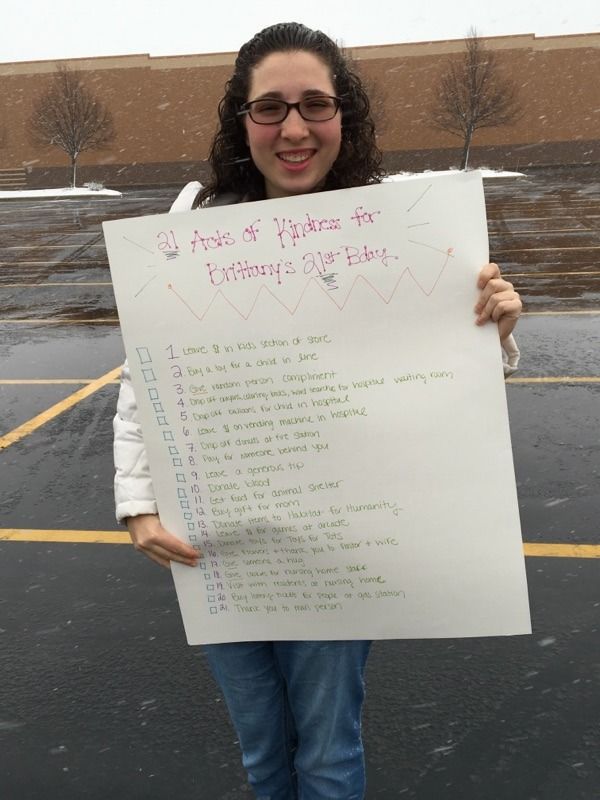 21 Acts of Kindness for
Brittany's 21st Bday
1 Leave $ in kids section of store
2. Buy a toy for a child in line
3. Give random person compliment
4. Drop off crayons, coloring books, word searches for hospital waiting room
5. Drop off balloons for child in hospital
6. Leave $ on vending machine in hospital
7. Drop off donuts at fire station
8. Pay for someone behind you
9. Leave a generous tip
10. Donate blood
11. Get food for animal shelter
12. Buy gift for mom
13. Donate items to Habitat for Humanity
14. Leave $ for games at arcade
15. Donate toys for Toys for Tots
16. Give flowers + thank you to Pastor + wife
17. Give someone a hug
18. Give for nursing home staff
19. Visit with residents at nursing home
20. Buy lottery ticket for people at gas station
21. Thank you to mail person